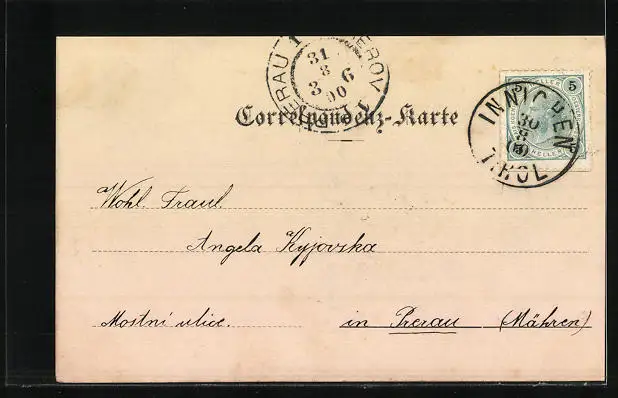 PRERAU 1 PŘEROV
31
8
3 6
00
Correspondenz-Karte
5
HELLER
INNICHEN
30
8
TIROL
Wohl. Fraul.
Angela Kyjovska
Mostní ulice. in Prerau (Mähren)